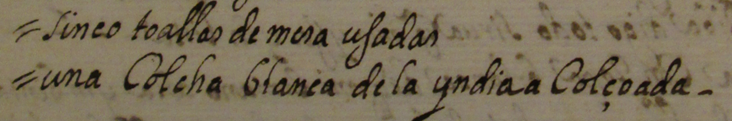 = sinco toallas de mesa usadas
= una Colcha blanca de la yndia a Colçoada -